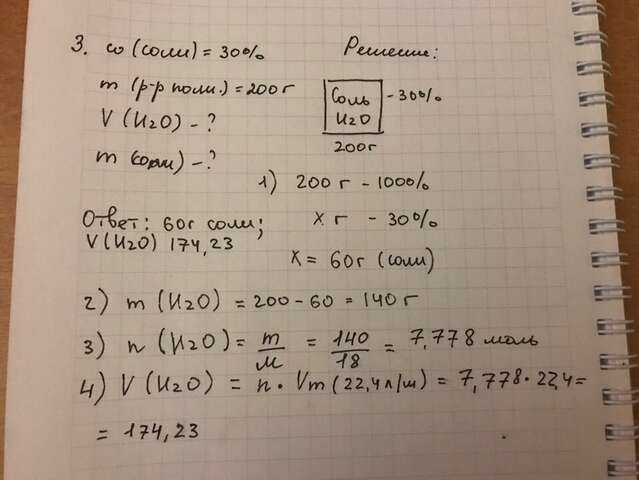 3. ω (соли) = 30%
Решение:
m (р-р поли.) = 200 г
Соль - 30%
H2O
V (H2O) - ?
200 г
m (соли) - ?
1) 200 г - 100%
Ответ: 60 г соли;
x г - 30%
V (H2O) 174,23
x = 60 г (соли)
2) m (H2O) = 200 - 60 = 140 г
3) n (H2O) = m/M = 140/18 = 7,778 моль
4) V (H2O) = n · Vm (22,4 л/м) = 7,778 · 22,4 =
= 174,23